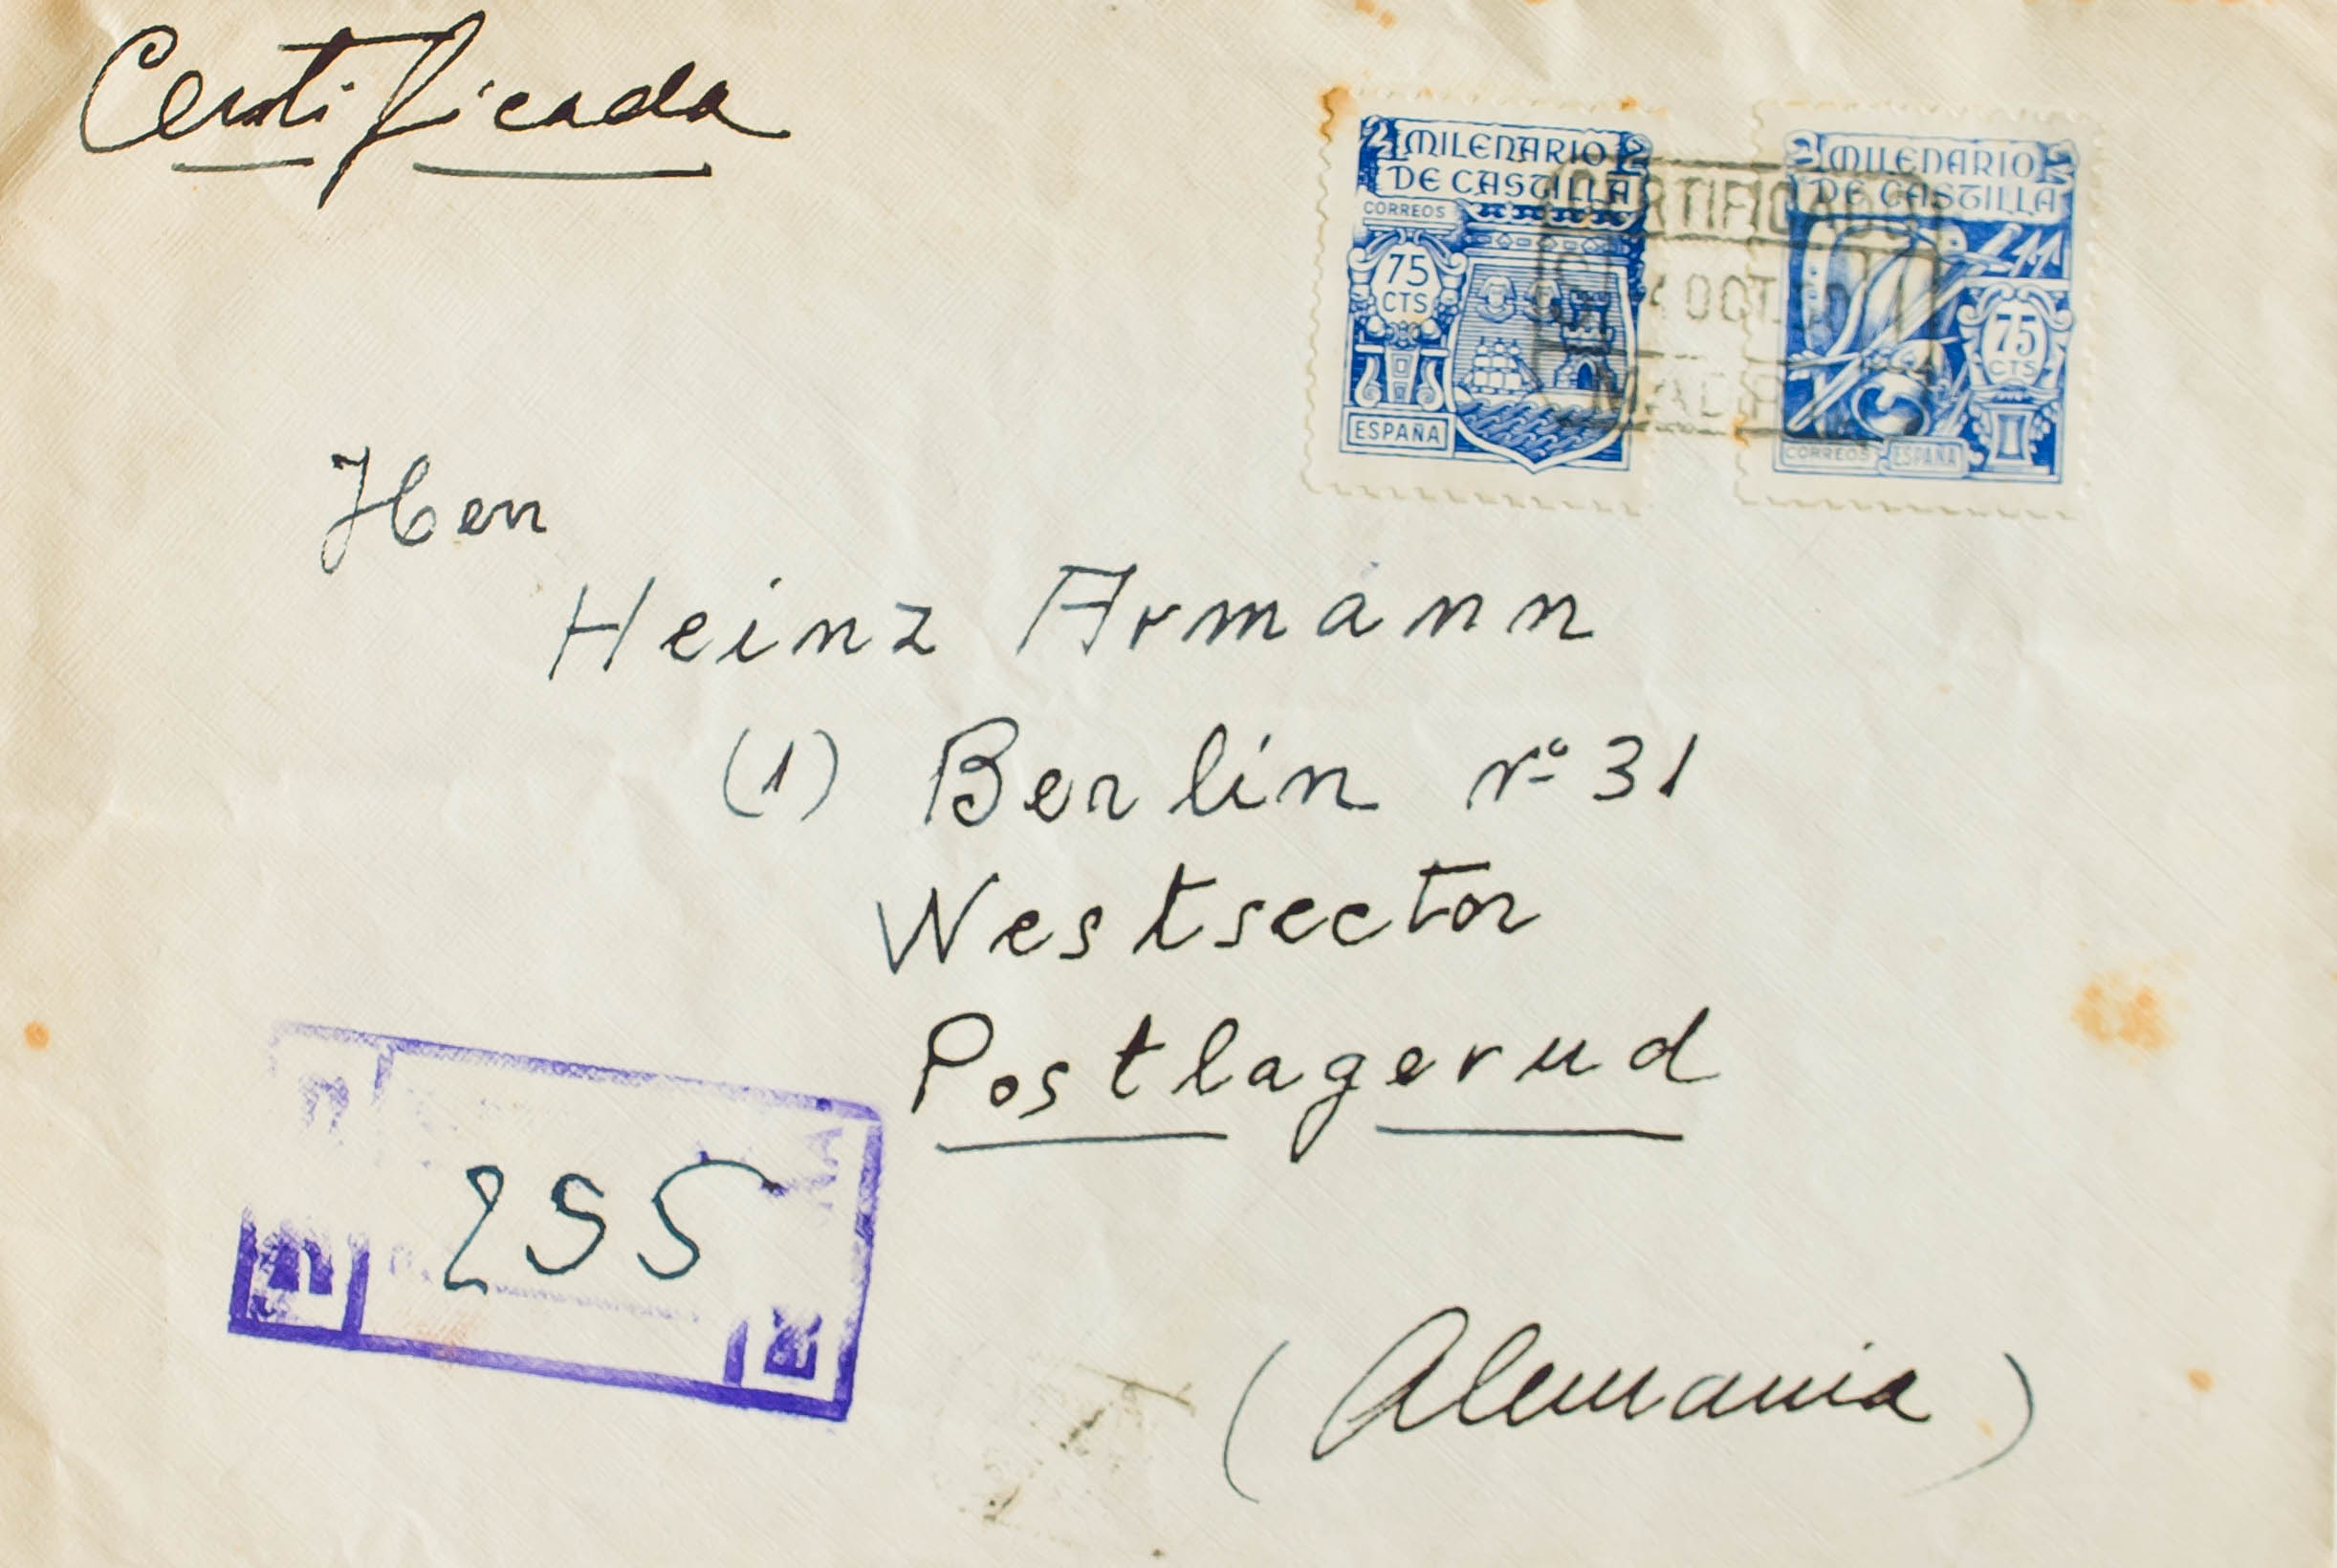 Certificada
MILENARIO
DE CASTILLA
CORREOS
75
CTS
ESPAÑA
MILENARIO
DE CASTILLA
75
CTS
CORREOS ESPAÑA
CERTIFICADO
OCT.
MADRID
Herr
Heinz Armánn
(1) Berlín nº 31
Westsector
Postlagerud
255
(Alemania)